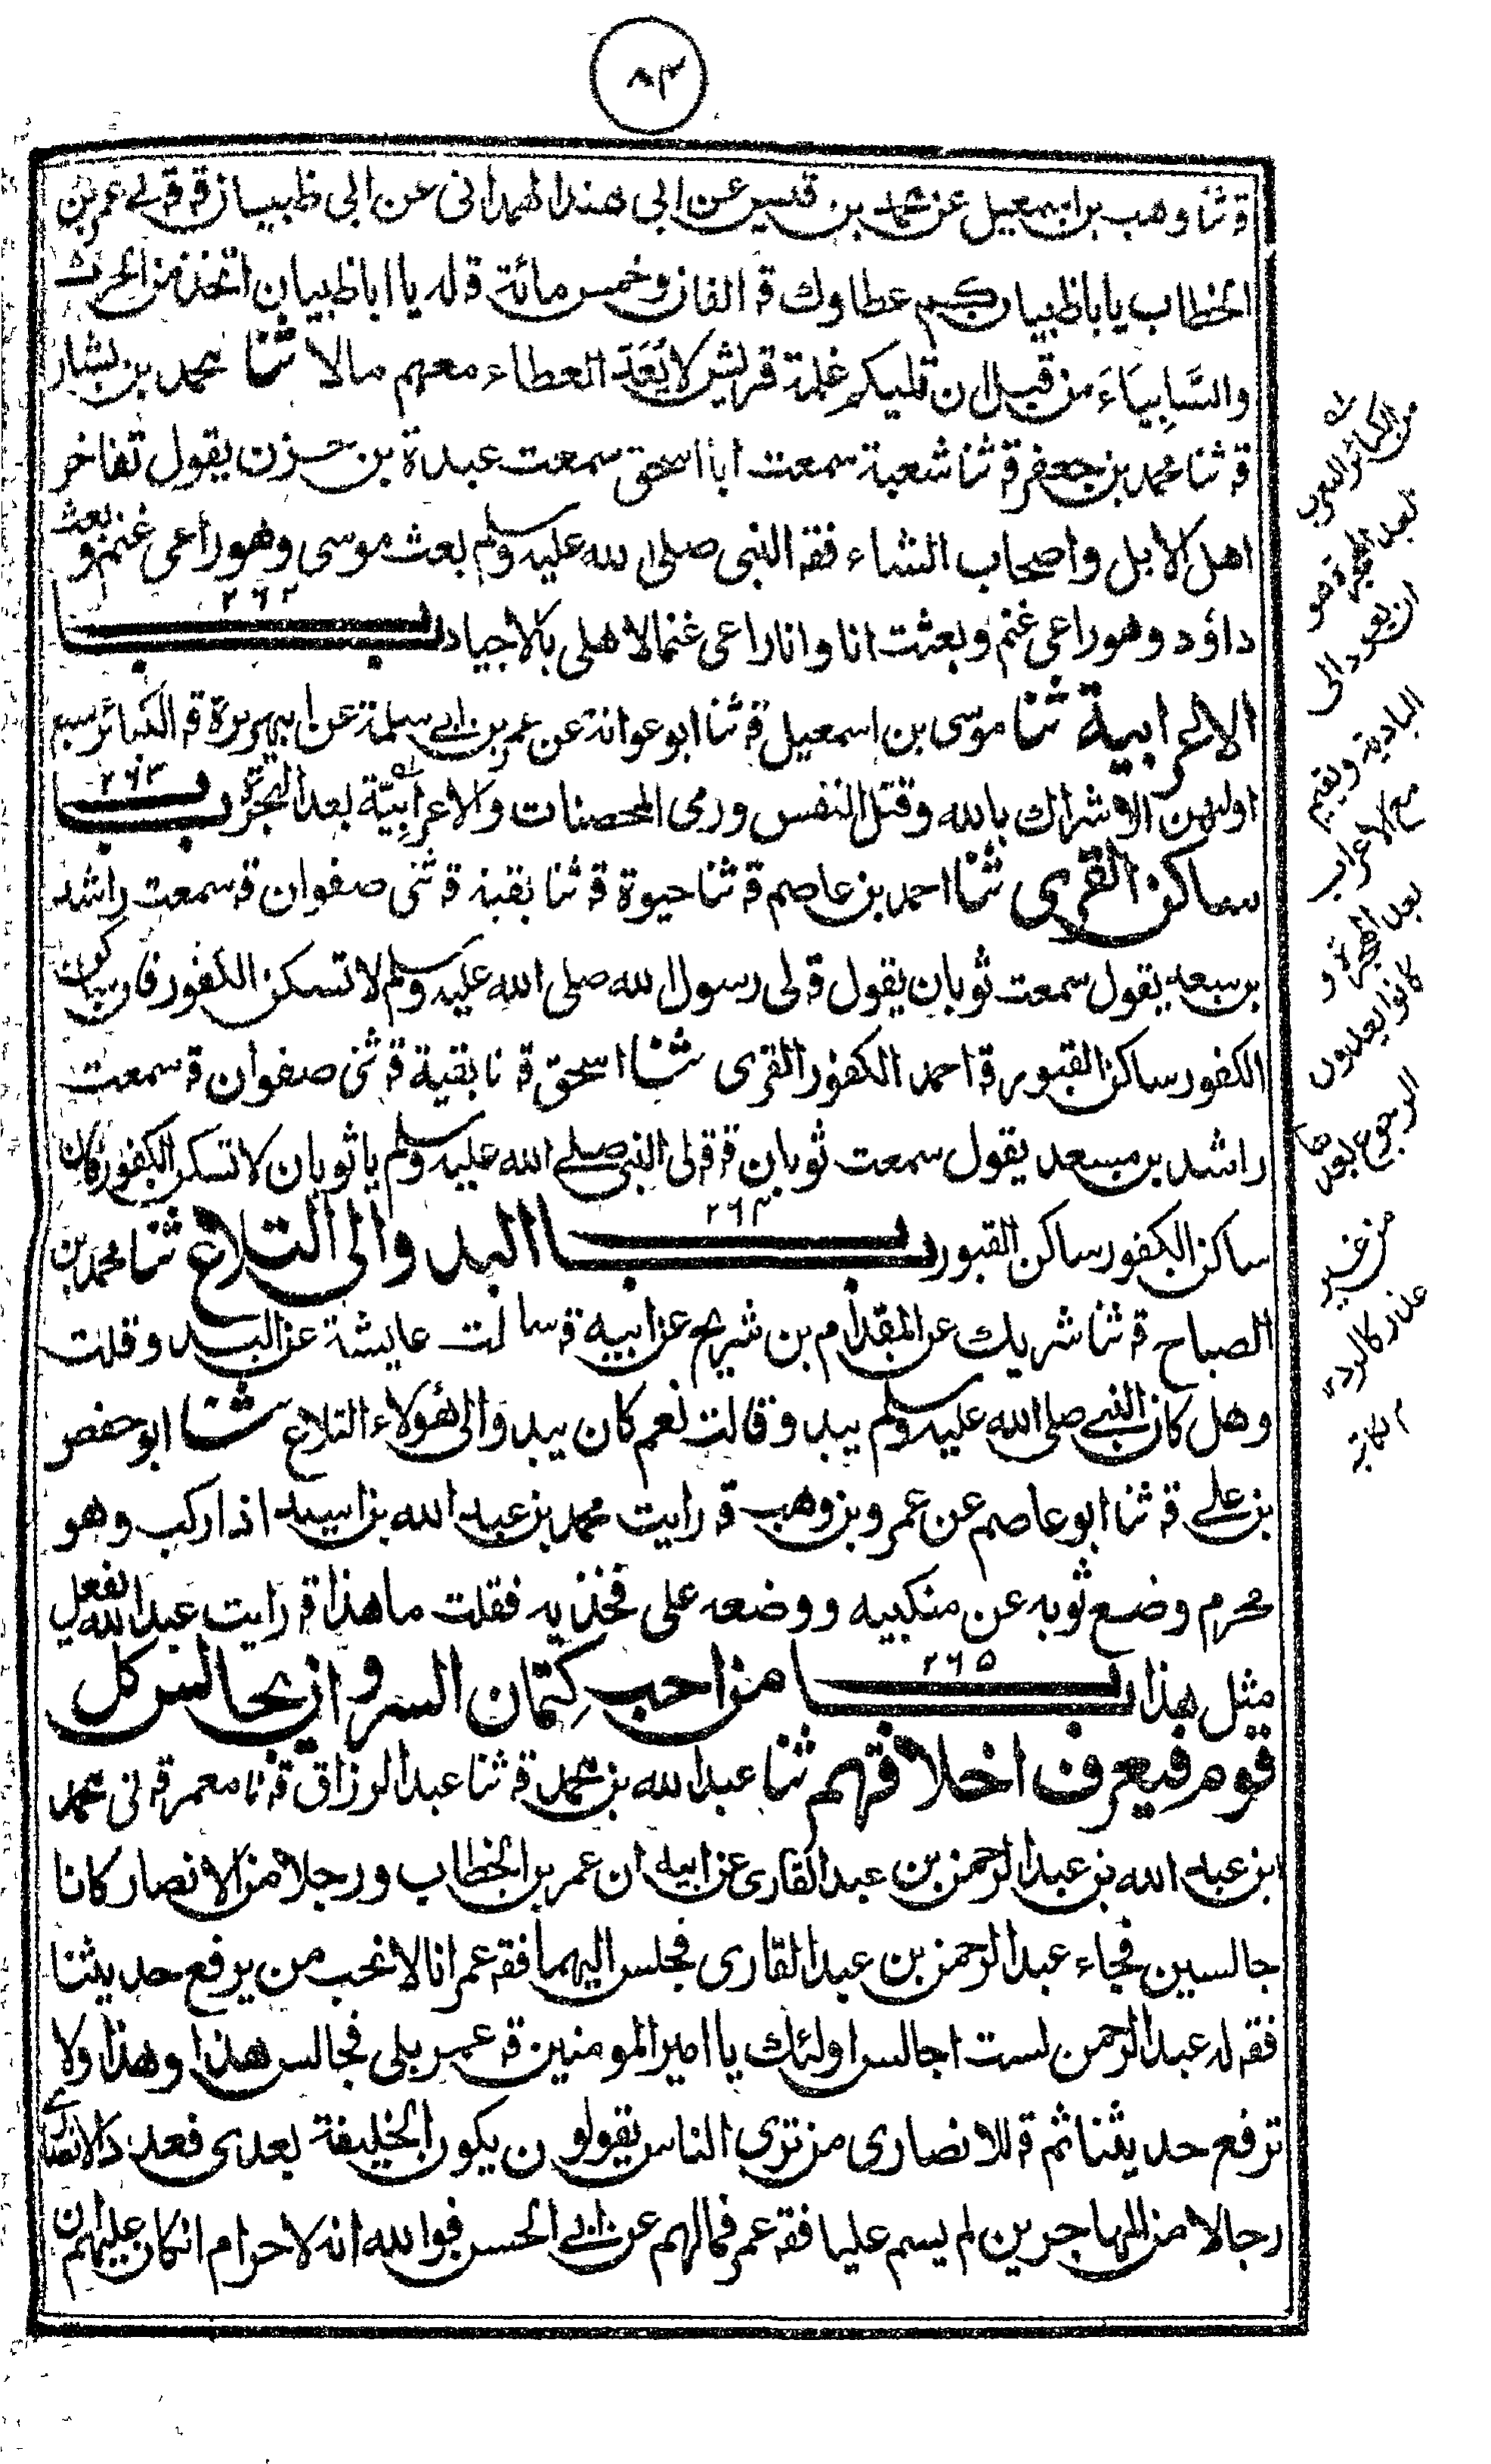 ٨٣
قه ثنا وهب بن اسمعيل عن محمد بن قيس عن ابى هند الهمدانى عن ابى ظبيان قه قه لى عمر بن
الخطاب يا باظبيان كم عطاوك قه الفان وخمس مائة قه له يا اباظبيان اتخذ من الحرث
والسَّابِيَاءَ من قبل ان تليكم غلمة قريش لا يُعَدّ العطاء معهم مالا ثنا محمد بن بشار
قه ثنا محمد بن جعفر قه ثنا شعبة سمعت ابا اسحق سمعت عبدة بن حزن يقول تفاخر
اهل الابل واصحاب الشاء فقه النبى صلى الله عليه وسلم بعث موسى وهو راعى غنم وبعث
داؤد وهو راعى غنم وبعثت انا وانا راعى غنما لاهلى بالاجياد باب ٢٦٢
الاعرابية ثنا موسى بن اسمعيل قه ثنا ابو عوانة عن عمر بن ابى سلمة عن ابيه هريرة قه الكبائر سبع
اولهن الاشراك بالله وقتل النفس ورمى المحصنات والاعرابيّة بعد الهجرة باب ٢٦٣
ساكن القرى ثنا احمد بن عاصم قه ثنا حيوة قه ثنا بقية قه ثنى صفوان قه سمعت راشد
بن سعد يقول سمعت ثوبان يقول قه لى رسول الله صلى الله عليه وسلم لا تسكن الكفور فان ساكن
الكفور ساكن القبور قه احمد الكفور القرى ثنا اسحق قه نا بقية قه ثنى صفوان قه سمعت
راشد بن سعد يقول سمعت ثوبان قه قه لى النبى صلے الله عليه وسلم يا ثوبان لا تسكن الكفور فان
ساكن الكفور ساكن القبور باب ٢٦٤ البدو الى التلاع ثنا محمد بن
الصباح قه ثنا شريك عن المقدام بن شريح عن ابيه قه سالت عايشة عن البدو قلت
وهل كان النبى صلى الله عليه وسلم يبدو قالت نعم كان يبدو الى هؤلاء التلاع ثنا ابو حفص
بن على قه ثنا ابو عاصم عن عمرو بن وهب قه رايت محمد بن عبد الله بن اسيد اذا ركب وهو
محرم وضع ثوبه عن منكبيه ووضعه على فخذيه فقلت ما هذا قه رايت عبد الله يفعل
مثل هذا باب ٢٦٥ من احب كتمان السر وان يجالس كل
قوم فيعرف اخلاقهم ثنا عبد الله بن محمد قه ثنا عبد الرزاق قه نا معمر قه نى محمد
ابن عبد الله بن عبد الرحمن بن عبد القارى عن ابيه ان عمر بن الخطاب ورجلا من الانصار كانا
جالسين فجاء عبد الرحمن بن عبد القارى فجلس اليهما فقه عمر انا لا نحب من يرفع حديثنا
فقه له عبد الرحمن لست اجالس اولئك يا امير المومنين قه عمر بلى فجالس هذا وهذا ولا
ترفع حديثنا ثم قه للانصارى من ترى الناس يقولون يكون الخليفة بعدى فعدد الانصارى
رجالا من المهاجرين لم يسم عليا فقه عمر فما لهم عن ابى الحسن فوالله انه لاحرام انكان عليهم ان
من الكبائر التعرب
بعد الهجرة هو
ان يعود الى
البادية ويقيم
مع الاعراب
بعد الهجرة و
كانوا يعدون
الرجوع بعدها
من غير
عذر كالردة